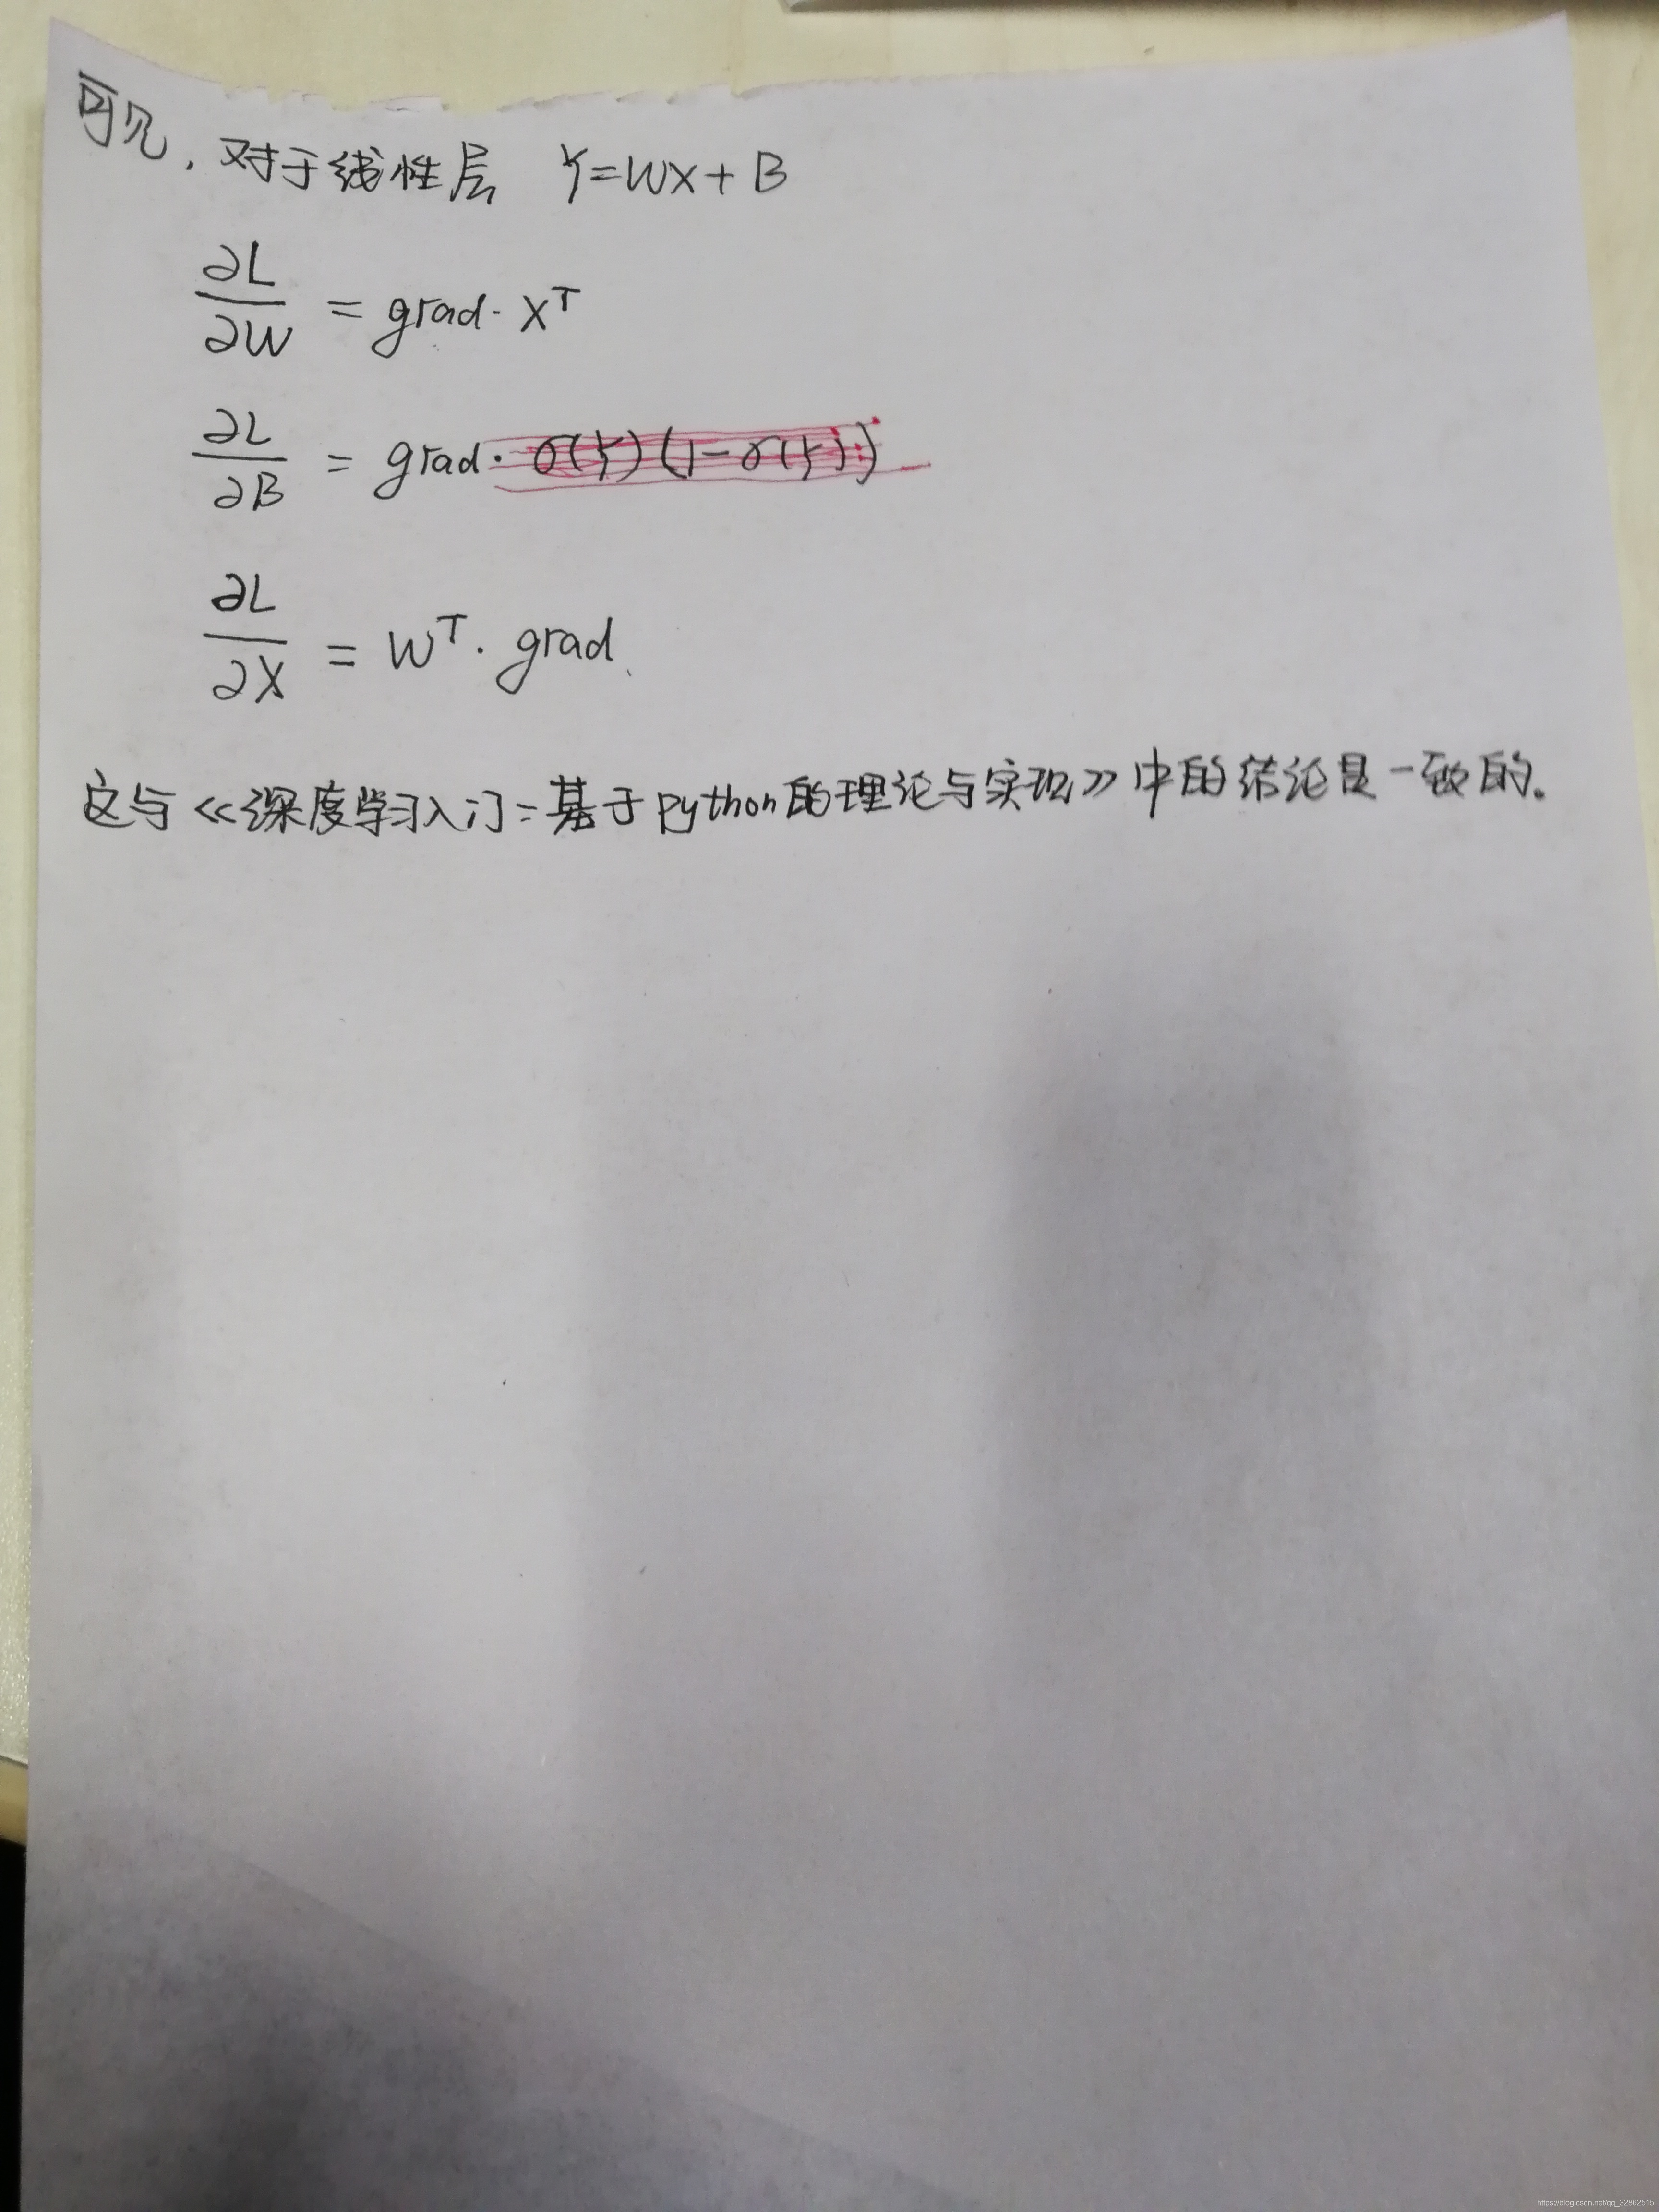 可见，对于线性层 Y=WX+B
∂L/∂W = grad·X^T
∂L/∂B = grad·σ(Y)(1-σ(Y))
∂L/∂X = W^T·grad
这与《深度学习入门：基于python的理论与实现》中的结论是一致的。
https://blog.csdn.net/qq_32862515